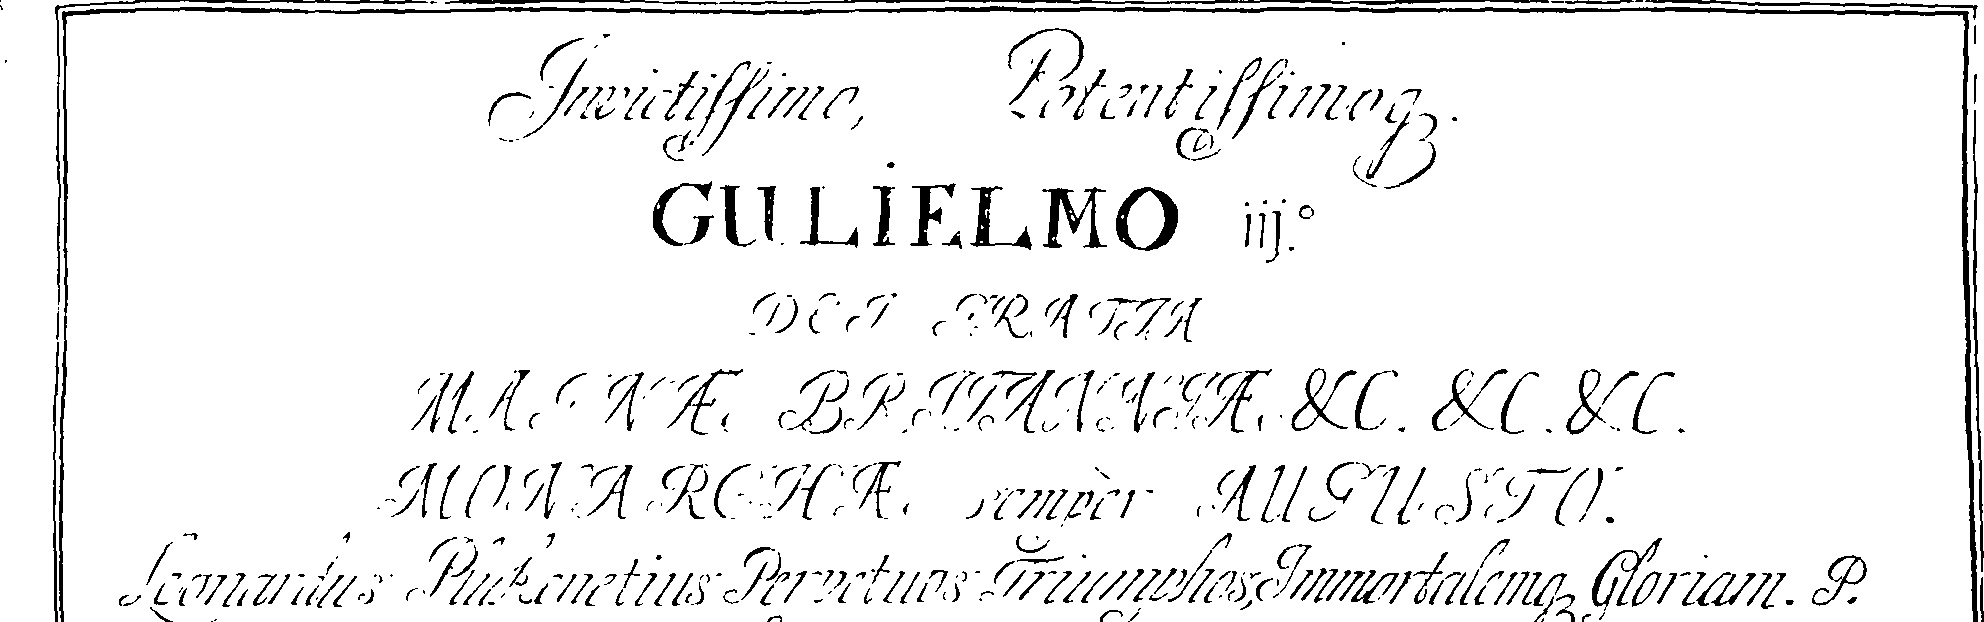 Invictissimo, Potentissimoq.
GULIELMO iij.º
DEI GRATIA
MAGNÆ BRITANNIÆ &C. &C. &C.
MONARCHÆ sempèr AUGUSTO.
Leonardus Plukenetius Perpetuos Triumphos, Immortalemq Gloriam. P.